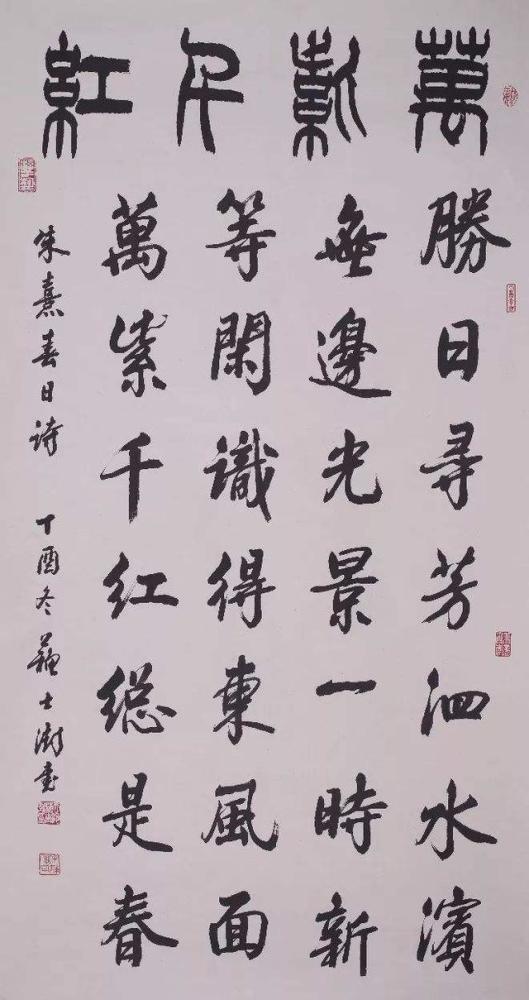 萬紫千紅
勝日尋芳泗水濱
無邊光景一時新
等閑識得東風面
萬紫千红總是春
朱熹春日詩 丁酉冬蘇士澍書